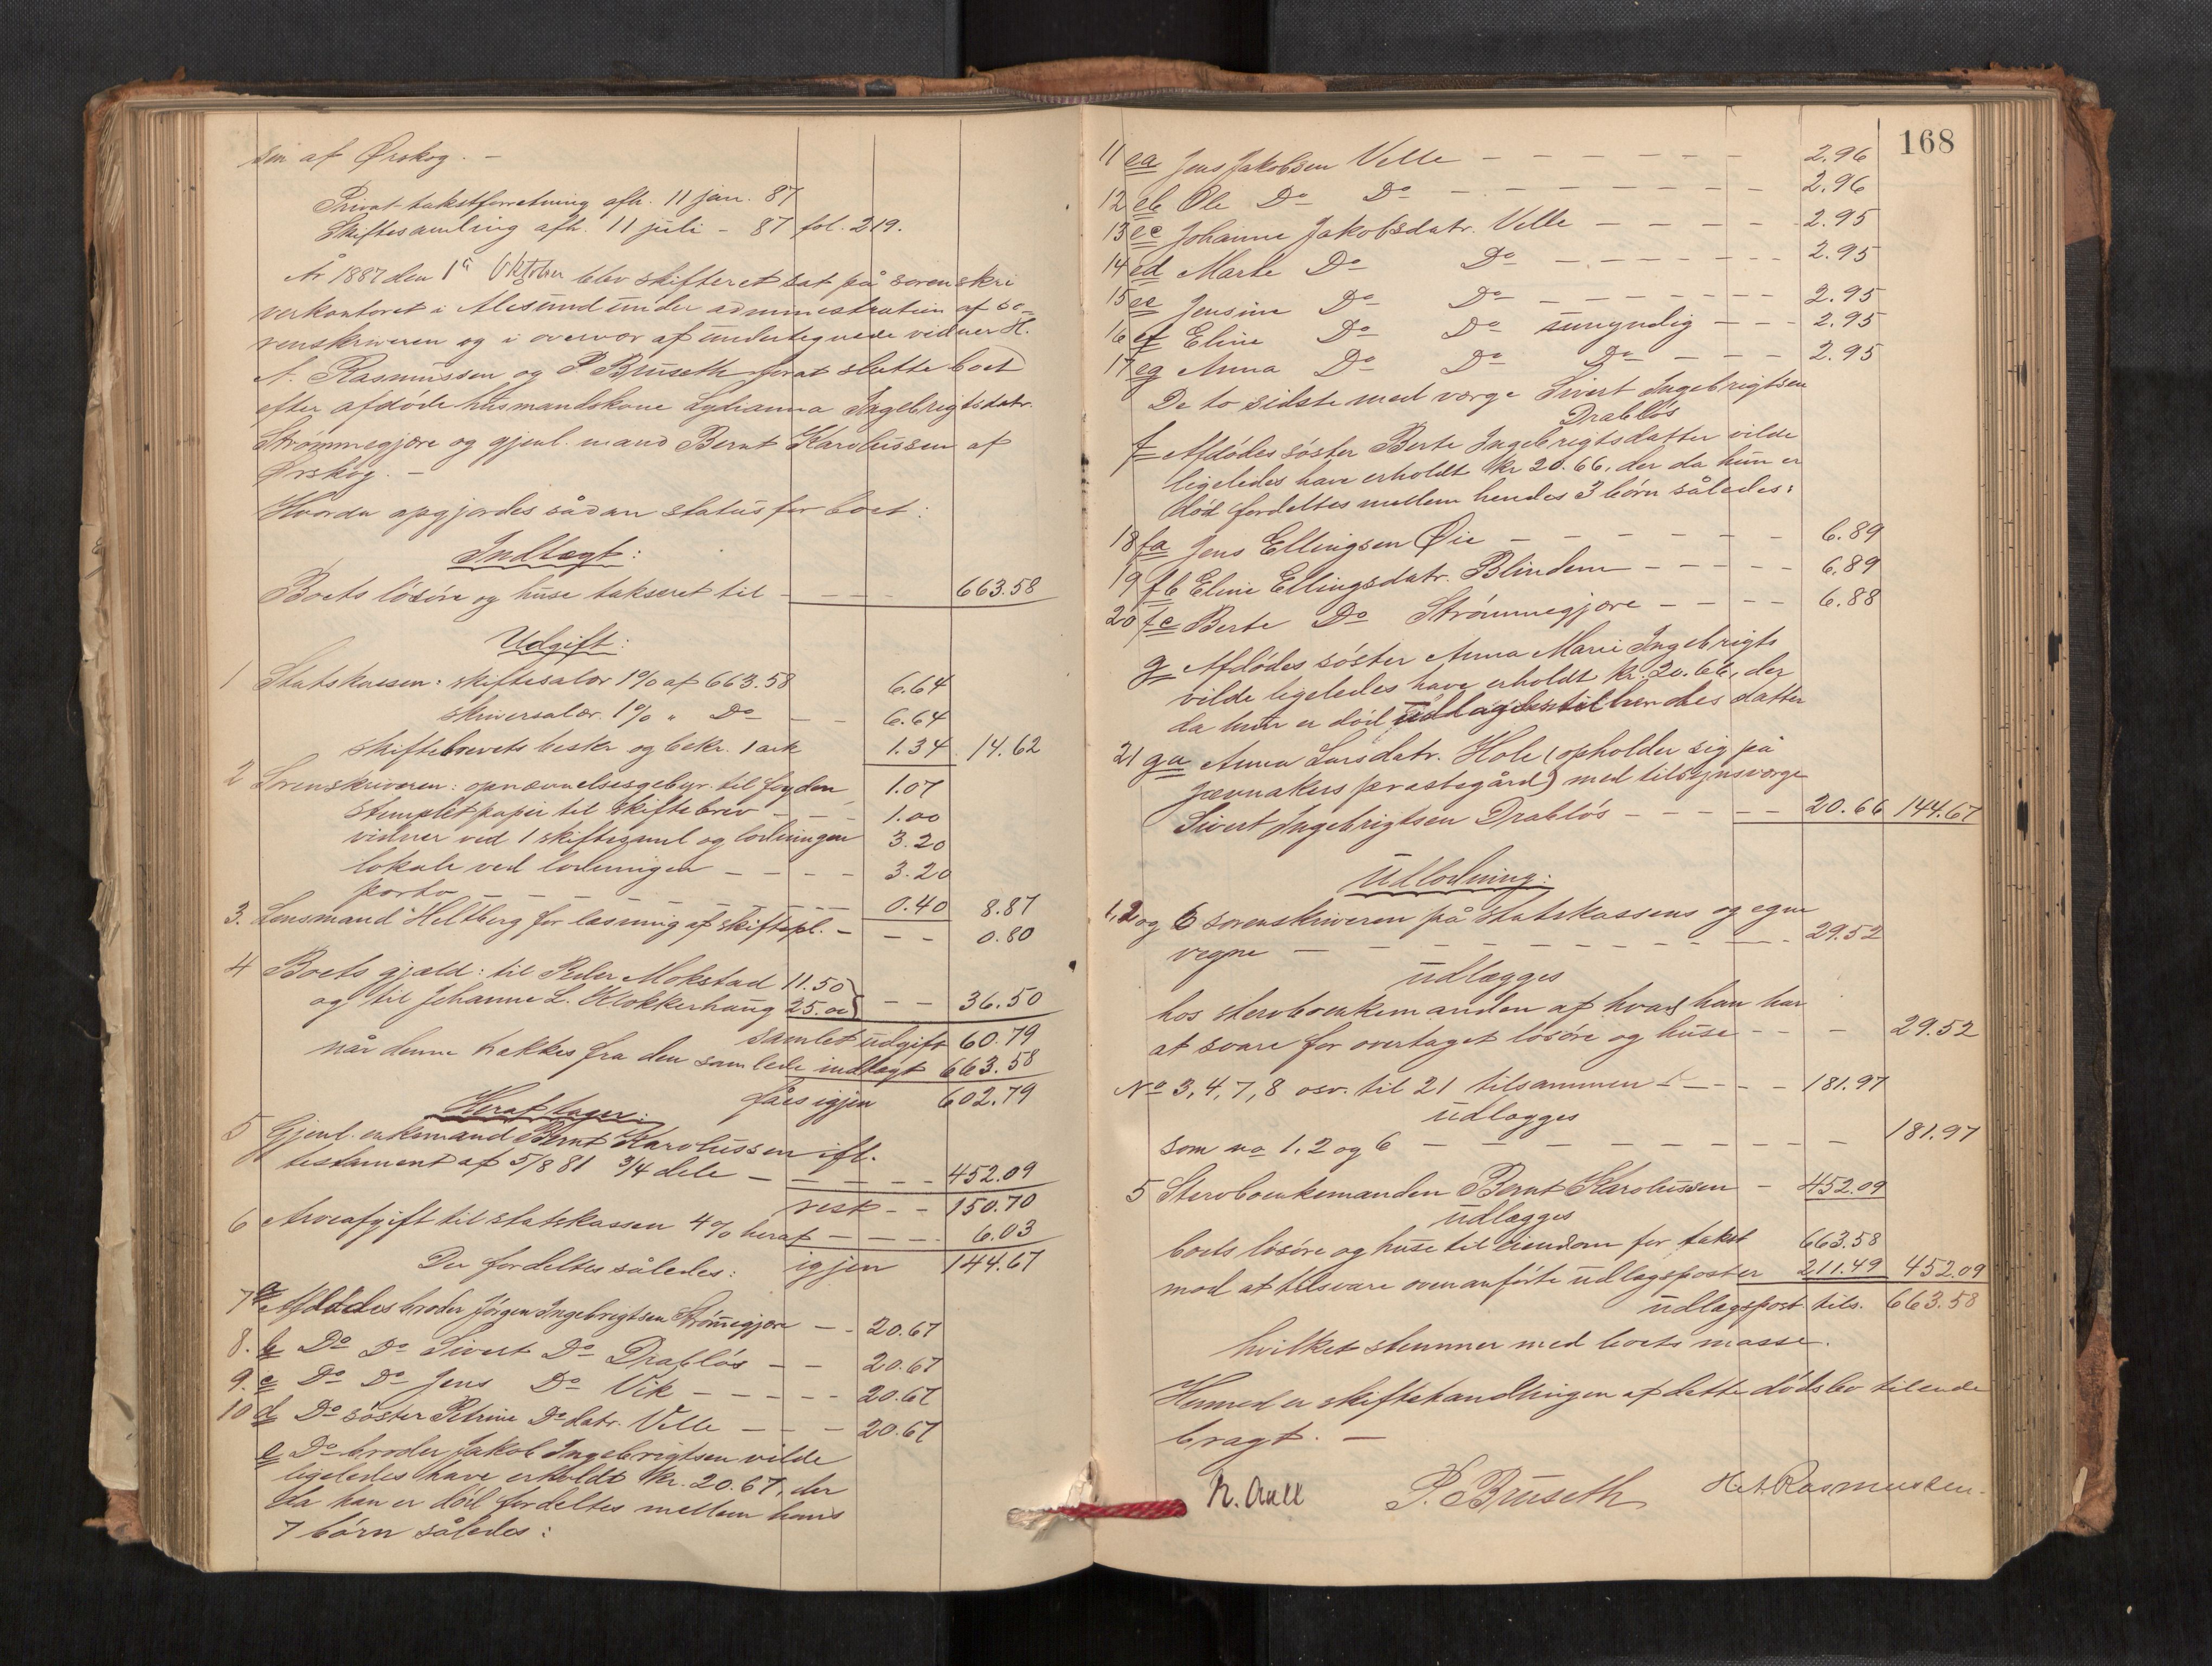 sen af Ørskog. -
Privat-takstforretning afh. 11 jan. 87
Skiftesamling afh. 11 juli - 87 fol. 219.
År 1887 den 1ᵃ Oktober blev skifteret sat på sorenskri
verkontoret i Alesund under administration af so-
renskriveren og i overvær af undertegnede vidner H.
A. Rasmussen og P. Bruseth forat slutte boet
efter afdøde husmandskone Lydianna Ingebrigtsdatr.
Strømmegjære og gjenl. mand Bernt Karolussen af
Ørskog. -
Hvorda opgjordes sådan status for boet:
Indtægt:
Boets løsøre og huse takseret til - - - - 663.58
Udgift:
1 Statskassen: skiftesalær 1% af 663.58 6.64
skriversalær 1% " Do - - 6.64
skiftebrevets beskr og bekr. 1 ark 1.34 14.62
2 Sorenskriveren: opnævnelsesgebyr. til fogden 1.07
stemplet papir til skiftebrev - - - 1.00
vidner ved 1 skiftesaml og lodningen 3.20
lokale ved lodningen - - - - 3.20
porto - - - - - - 0.40 8.87
3. Lensmand Heltberg for læsning af skiftepl. - - - 0.80
4 Boets gjæld: til Peder Mokstad 11.50
og til Johanne L. Klokkerhaug 25.00 } - - 36.50
samlet udgift 60.79
når denne trækkes fra den samlede indtægt 663.58
fåes igjen 602.79
Heraf tager:
5 Gjenl. enkemand Bernt Karolussen ifl.
testament af 5/8 81 3/4 dele - - - - - 452.09
rest - - 150.70
6 Arveafgift til statskassen 4% heraf - - - - 6.03
Der fordeltes således: igjen 144.67
7 a Afdødes broder Jørgen Ingebrigtsen Strømmegjære - - 20.67
8. b Do Do Sivert Do Drabløs - - 20.67
9. c Do Do Jens Do Vik - - - - - 20.67
10 d Do søster Petrine Do datr. Velle - - - 20.67
e Do broder Jakob Ingebrigtsen vilde
ligeledes have erholdt kr. 20.67, der
da han er død fordeltes mellem hans
7 børn således:
168
11 ea Jens Jakobsen Velle - - - - - - - 2.96
12 eb Ole Do Do - - - - - - - - 2.96
13 ec Johanne Jakobsdatr. Velle - - - - - 2.95
14 ed Marte Do Do - - - - - - - 2.95
15 ee Jensine Do Do - - - - - - - 2.95
16 ef Eline Do Do umyndig - - - 2.95
17 eg Anna Do Do Do - - - - 2.95
De to sidste med værge Sivert Ingebrigtsen
Drabløs
f Afdødes søster Berte Ingebrigtsdatter vilde
ligeledes have erholdt kr 20.66, der da hun er
død fordeltes mellem hendes 3 børn således:
18 fa Jens Ellingsen Øie - - - - - - - 6.89
19 fb Eline Ellingsdatr. Blindem - - - - - 6.89
20 fc Berte Do Strømmegjære - - - - 6.88
g Afdødes søster Anna Marie Ingebrigts
vilde ligeledes have erholdt kr. 20.66, der
da hun er død udlægdes til hendes datter
21 ga Anna Larsdatr. Hole (opholder sig på
Jævnakers præstegård) med tilsynsværge
Sivert Ingebrigtsen Drabløs - - - - - - 20.66 144.67
Udlodning:
1, 2 og 6 sorenskriveren på statskassens og egne
vegne - - - - - - - - - - - 29.52
udlægges
hos stervboenkemanden af hvad han har
at svare for overtaget løsøre og huse - - - 29.52
No 3, 4, 7, 8 osv. til 21 tilsammen - - - - 181.97
udlægges
som no 1, 2 og 6 - - - - - - - - - - 181.97
5 Stervboenkemanden Bernt Karolussen - 452.09
udlægges
boets løsøre og huse til eiendom for takst 663.58
mod at tilsvare ovenanførte udlægsposter 211.49 452.09
udlægspost tils. 663.58
hvilket stemmer med boets masse.
Hermed er skiftehandlingen af dette dødsbo tilende
bragt. -
N. Aall P. Bruseth H. A. Rasmussen.